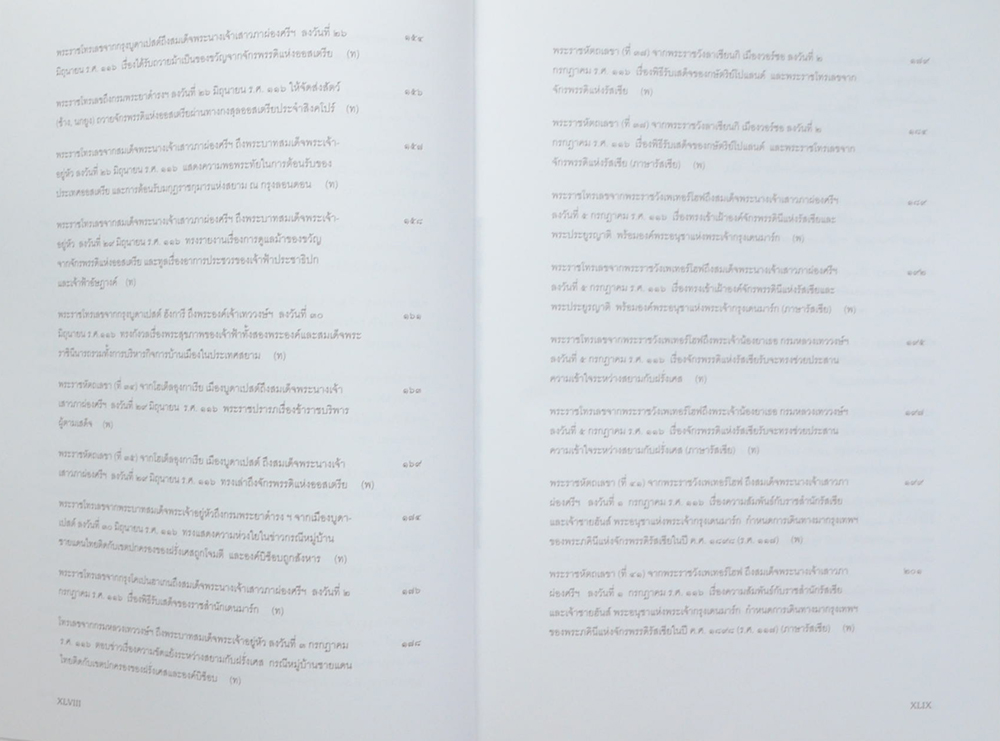 พระราชโทรเลขจากกรุงบูดาเปสต์ถึงสมเด็จพระนางเจ้าเสาวภาผ่องศรีฯ ลงวันที่ ๒๖ ๑๕๔
มิถุนายน ร.ศ. ๑๑๖ เรื่องได้รับถวายม้าเป็นของขวัญจากจักรพรรดิแห่งออสเตรีย (ท)
พระราชโทรเลขถึงกรมพระยาดำรงฯ ลงวันที่ ๒๖ มิถุนายน ร.ศ. ๑๑๖ ให้จัดส่งสัตว์ ๑๕๖
(ช้าง, นกยูง) ถวายจักรพรรดิแห่งออสเตรียผ่านทางกงสุลออสเตรียประจำสิงคโปร์ (ท)
พระราชโทรเลขจากสมเด็จพระนางเจ้าเสาวภาผ่องศรีฯ ถึงพระบาทสมเด็จพระเจ้า-
อยู่หัว ลงวันที่ ๒๖ มิถุนายน ร.ศ. ๑๑๖ แสดงความพอพระทัยในการต้อนรับของ
ประเทศออสเตรีย และการต้อนรับมกุฎราชกุมารแห่งสยาม ณ กรุงลอนดอน (ท)
พระราชโทรเลขจากสมเด็จพระนางเจ้าเสาวภาผ่องศรีฯ ถึงพระบาทสมเด็จพระเจ้า- ๑๕๘
อยู่หัว ลงวันที่ ๒๙ มิถุนายน ร.ศ. ๑๑๖ ทรงรายงานเรื่องการดูแลม้าของขวัญ
จากจักรพรรดิแห่งออสเตรีย และทูลเรื่องอาการประชวรของเจ้าฟ้าประชาธิปก
และเจ้าฟ้าอัษฎางค์ (ท)
พระราชโทรเลขจากกรุงบูดาเปสต์ ฮังการี ถึงพระองค์เจ้าเทววงษ์ฯ ลงวันที่ ๓๐ ๑๖๑
มิถุนายน ร.ศ. ๑๑๖ ทรงกังวลเรื่องพระสุขภาพของเจ้าฟ้าทั้งสองพระองค์และสมเด็จพระ
ราชินีนาถรวมทั้งการบริหารกิจการบ้านเมืองในประเทศสยาม (ท)
พระราชหัตถเลขา (ที่ ๓๔) จากโฮเต็ลฮุงกาเรีย เมืองบูดาเปสต์ถึงสมเด็จพระนางเจ้า ๑๖๓
เสาวภาผ่องศรีฯ ลงวันที่ ๒๙ มิถุนายน ร.ศ. ๑๑๖ พระราชปรารภเรื่องข้าราชบริพาร
ผู้ตามเสด็จ (พ)
พระราชหัตถเลขา (ที่ ๓๕) จากโฮเต็ลฮุงกาเรีย เมืองบูดาเปสต์ ถึงสมเด็จพระนางเจ้า ๑๖๙
เสาวภาผ่องศรีฯ ลงวันที่ ๒๙ มิถุนายน ร.ศ. ๑๑๖ ทรงเล่าถึงจักรพรรดิแห่งออสเตรีย (พ)
พระราชโทรเลขจากพระบาทสมเด็จพระเจ้าอยู่หัวถึงกรมพระยาดำรง ฯ จากเมืองบูดา-
เปสต์ ลงวันที่ ๓๐ มิถุนายน ร.ศ. ๑๑๖ ทรงแสดงความห่วงใยในข่าวกรณีหมู่บ้าน
ชายแดนไทยติดกับเขตปกครองของฝรั่งเศสถูกโจมตี และองค์บิช็อบถูกสังหาร (ท)
พระราชโทรเลขจากกรุงโคเปนฮาเกนถึงสมเด็จพระนางเจ้าเสาวภาผ่องศรีฯ ลงวันที่ ๒ ๑๗๖
กรกฎาคม ร.ศ. ๑๑๖ เรื่องพิธีรับเสด็จของราชสำนักเดนมาร์ก (ท)
โทรเลขจากกรมหลวงเทววงษ์ฯ ถึงพระบาทสมเด็จพระเจ้าอยู่หัว ลงวันที่ ๓ กรกฎาคม ๑๗๘
ร.ศ. ๑๑๖ ตอบข่าวเรื่องความขัดแย้งระหว่างสยามกับฝรั่งเศส กรณีหมู่บ้านชายแดน
ไทยติดกับเขตปกครองของฝรั่งเศสและองค์บิช็อบ (ท)
XLVIII
พระราชหัตถเลขา (ที่ ๓๗) จากพระราชวังลาเซียนกิ เมืองวอร์ซอ ลงวันที่ ๒
กรกฎาคม ร.ศ. ๑๑๖ เรื่องพิธีรับเสด็จของกษัตริย์โปแลนด์ และพระราชโทรเลขจาก
จักรพรรดิแห่งรัสเซีย (พ)
พระราชหัตถเลขา (ที่ ๓๗) จากพระราชวังลาเซียนกิ เมืองวอร์ซอ ลงวันที่ ๒ ๑๘๕
กรกฎาคม ร.ศ. ๑๑๖ เรื่องพิธีรับเสด็จของกษัตริย์โปแลนด์ และพระราชโทรเลขจาก
จักรพรรดิแห่งรัสเซีย (ภาษารัสเซีย) (พ)
พระราชโทรเลขจากพระราชวังเพเทอร์โฮฟถึงสมเด็จพระนางเจ้าเสาวภาผ่องศรีฯ ๑๘๙
ลงวันที่ ๕ กรกฎาคม ร.ศ. ๑๑๖ เรื่องทรงเข้าเฝ้าองค์จักรพรรดินีแห่งรัสเซียและ
พระประยูรญาติ พร้อมองค์พระอนุชาแห่งพระเจ้ากรุงเดนมาร์ก (พ)
พระราชโทรเลขจากพระราชวังเพเทอร์โฮฟถึงสมเด็จพระนางเจ้าเสาวภาผ่องศรีฯ ๑๙๒
ลงวันที่ ๕ กรกฎาคม ร.ศ. ๑๑๖ เรื่องทรงเข้าเฝ้าองค์จักรพรรดินีแห่งรัสเซียและ
พระประยูรญาติ พร้อมองค์พระอนุชาแห่งพระเจ้ากรุงเดนมาร์ก (ภาษารัสเซีย) (พ)
พระราชโทรเลขจากพระราชวังเพเทอร์โฮฟถึงพระเจ้าน้องยาเธอ กรมหลวงเทววงษ์ฯ ๑๙๕
ลงวันที่ ๕ กรกฎาคม ร.ศ. ๑๑๖ เรื่องจักรพรรดิแห่งรัสเซียรับจะทรงช่วยประสาน
ความเข้าใจระหว่างสยามกับฝรั่งเศส (ท)
พระราชโทรเลขจากพระราชวังเพเทอร์โฮฟถึงพระเจ้าน้องยาเธอ กรมหลวงเทววงษ์ฯ ๑๙๗
ลงวันที่ ๕ กรกฎาคม ร.ศ. ๑๑๖ เรื่องจักรพรรดิแห่งรัสเซียรับจะทรงช่วยประสาน
ความเข้าใจระหว่างสยามกับฝรั่งเศส (ภาษารัสเซีย) (ท)
พระราชหัตถเลขา (ที่ ๔๑) จากพระราชวังเพเทอร์โฮฟ ถึงสมเด็จพระนางเจ้าเสาวภา ๑๙๙
ผ่องศรีฯ ลงวันที่ ๑ กรกฎาคม ร.ศ. ๑๑๖ เรื่องความสัมพันธ์กับราชสำนักรัสเซีย
และเจ้าชายฮันส์ พระอนุชาแห่งพระเจ้ากรุงเดนมาร์ก กำหนดการเดินทางมากรุงเทพฯ
ของพระภคินีแห่งจักรพรรดิรัสเซียในปี ค.ศ. ๑๘๙๘ (ร.ศ. ๑๑๗) (พ)
พระราชหัตถเลขา (ที่ ๔๑) จากพระราชวังเพเทอร์โฮฟ ถึงสมเด็จพระนางเจ้าเสาวภา ๒๐๑
ผ่องศรีฯ ลงวันที่ ๑ กรกฎาคม ร.ศ. ๑๑๖ เรื่องความสัมพันธ์กับราชสำนักรัสเซีย
และเจ้าชายฮันส์ พระอนุชาแห่งพระเจ้ากรุงเดนมาร์ก กำหนดการเดินทางมากรุงเทพฯ
ของพระภคินีแห่งจักรพรรดิรัสเซียในปี ค.ศ. ๑๘๙๘ (ร.ศ. ๑๑๗) (ภาษารัสเซีย) (พ)
XLIX